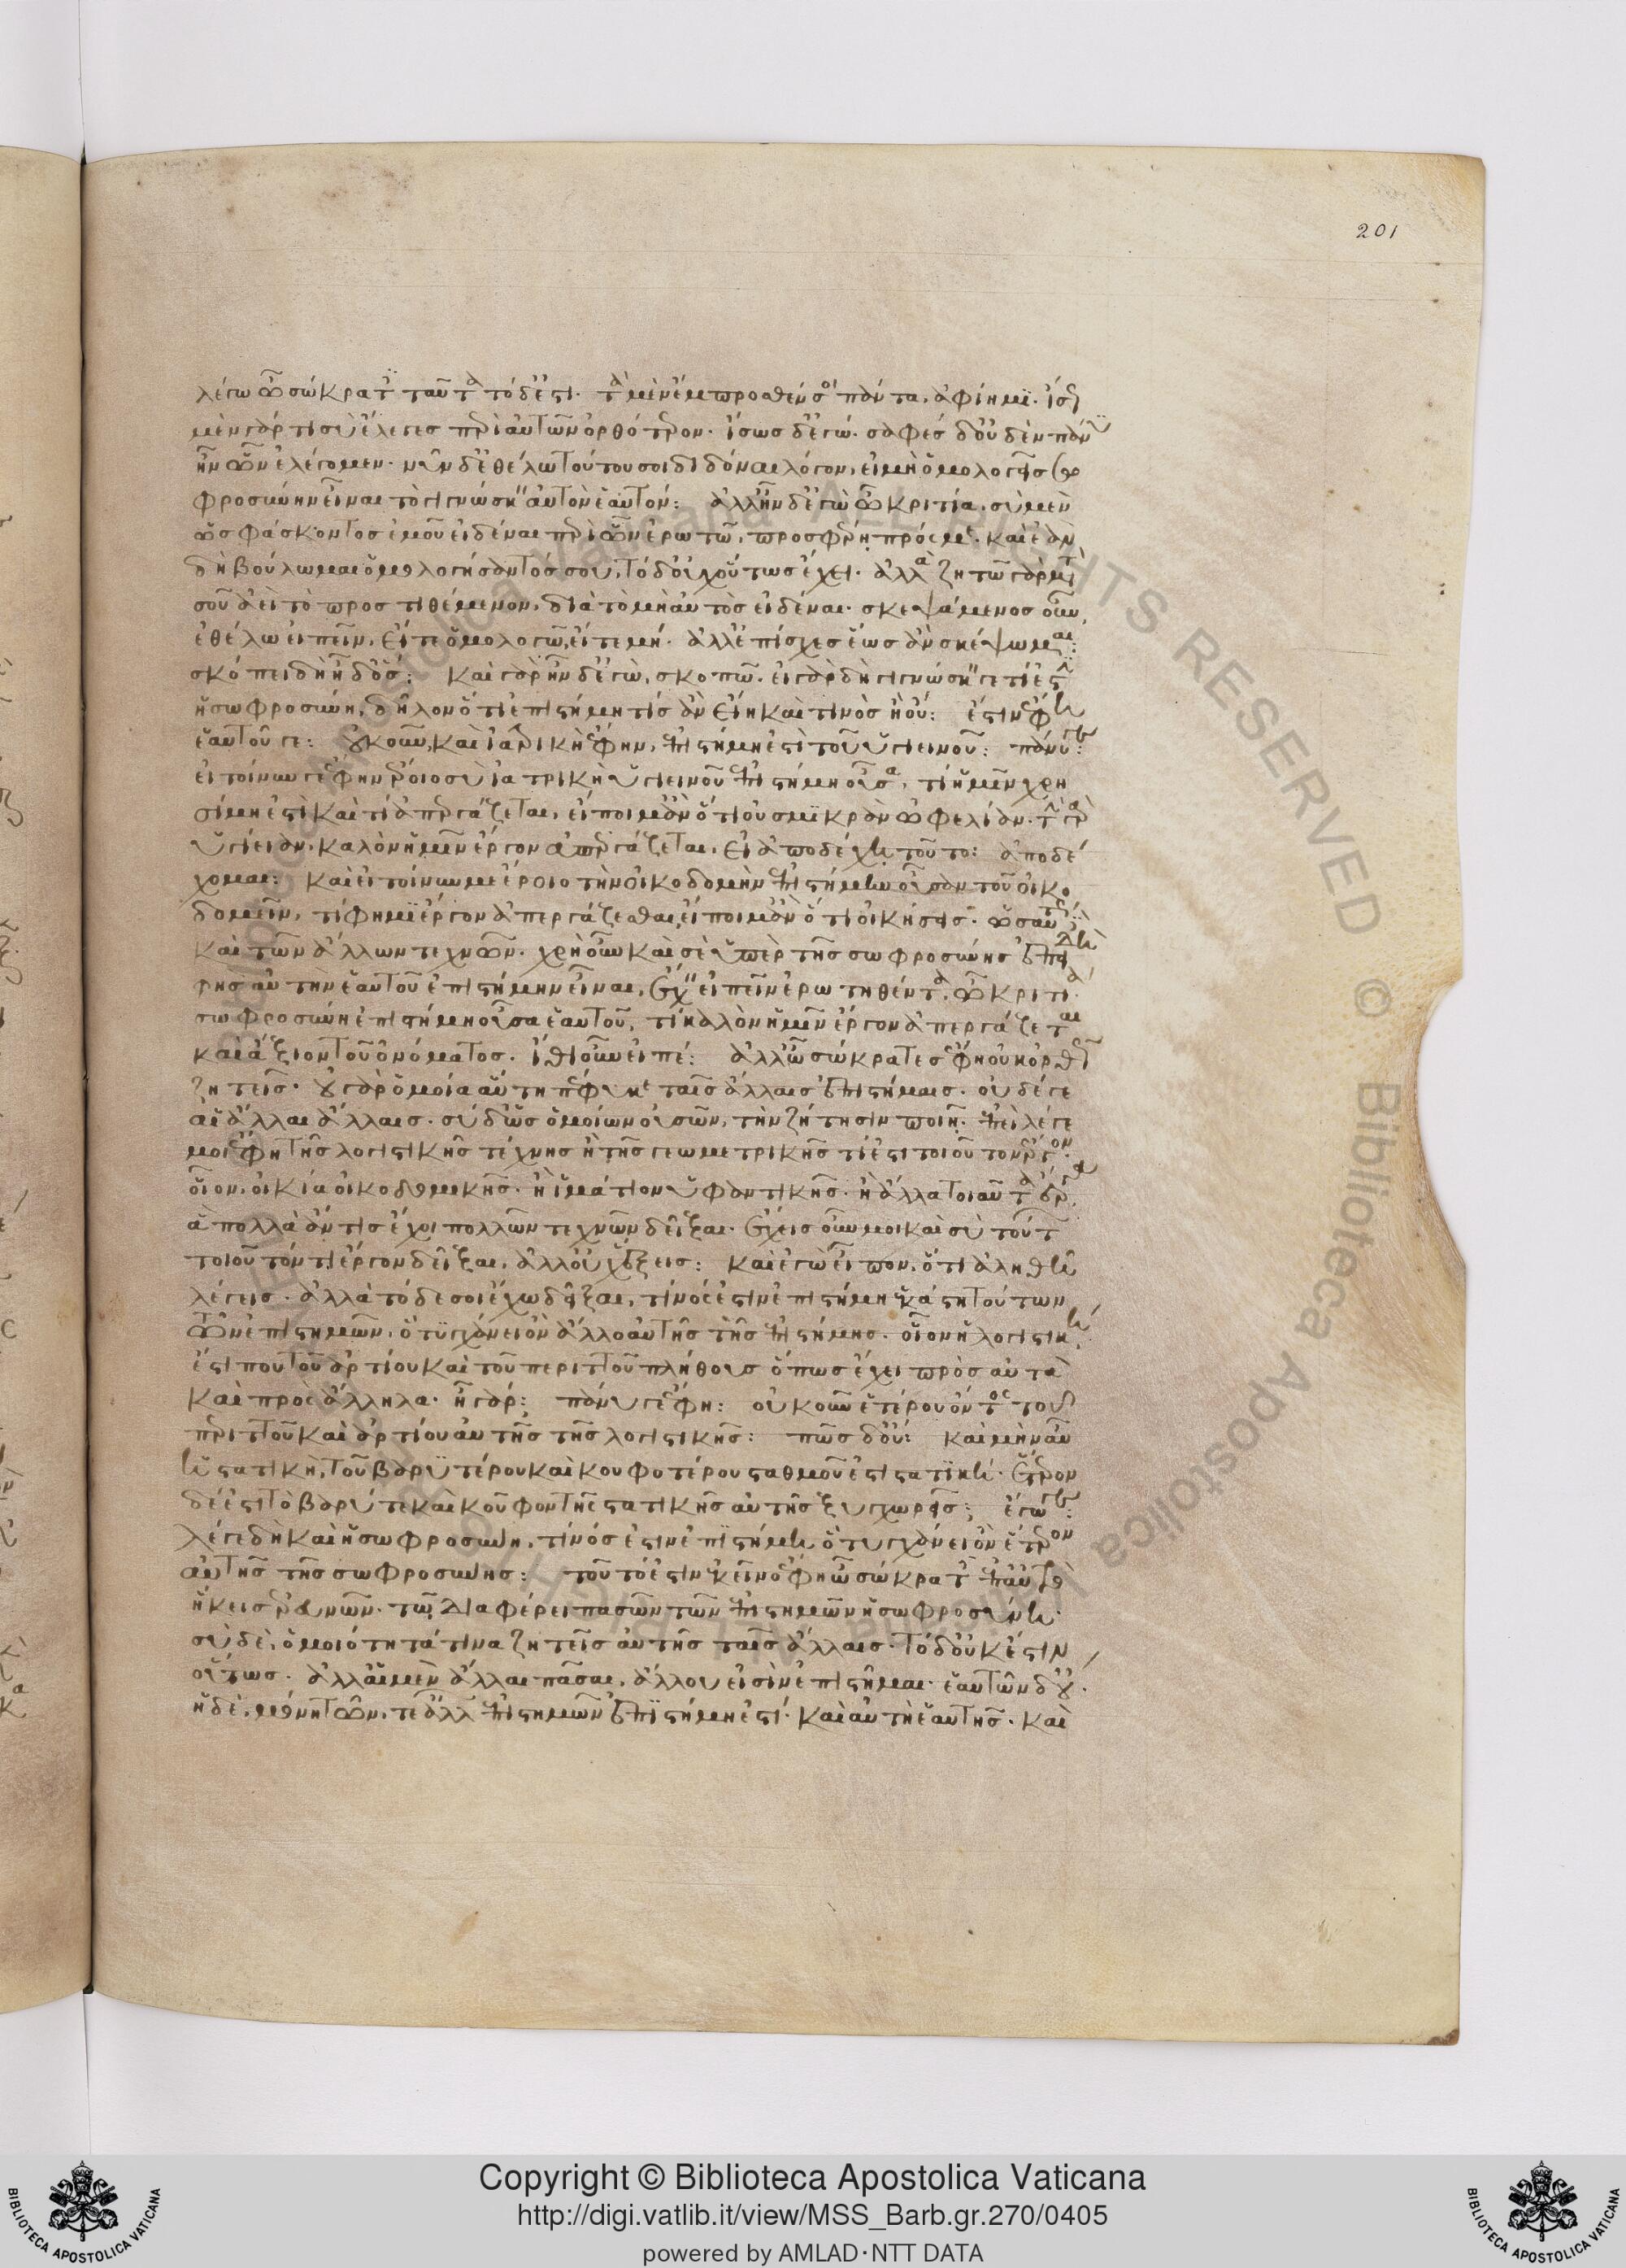 201
λέγω ὦ σώκρατες ταῦτα τόδέ ἐστι. τὰ μὲν ἔμπροσθέν σοι πάντα ἀφίημι. ἴσως
μὲν γάρ τι σὺ ἔλεγες περὶ αὐτῶν ὀρθότερον. ἴσως δ' ἐγώ. σαφὲς δ' οὐδὲν πάνυ
ἦν ὧν ἐλέγομεν. νῦν δ' ἐθέλω τούτου σοι διδόναι λόγον, εἰ μὴ ὁμολογεῖς σω
φροσύνην εἶναι τὸ γιγνώσκειν αὐτὸν ἑαυτόν: ἀλλ' ἦν δ' ἐγὼ ὦ κριτία, σὺ μὲν
ὡς φάσκοντος ἐμοῦ εἰδέναι περὶ ὧν ἐρωτῶ, προσφέρῃ πρός με. καὶ ἐὰν
δὴ βούλωμαι ὁμολογήσαντός σου, τὸ δ' οὐχ οὕτως ἔχει. ἀλλὰ ζητῶ γὰρ μετὰ
σοῦ ἀεὶ τὸ προστιθέμενον, διὰ τὸ μὴ αὐτὸς εἰδέναι. σκεψάμενος οὖν,
ἐθέλω εἰπεῖν, εἴτε ὁμολογῶ, εἴτε μή. ἀλλ' ἐπίσχες ἕως ἂν σκέψωμαι:
σκόπει δὴ ἦ δ' ὅς: καὶ γὰρ ἦν δ' ἐγώ, σκοπῶ. εἰ γὰρ δὴ γιγνώσκειν γέ τί ἐστιν
ἡ σωφροσύνη, δῆλον ὅτι ἐπιστήμη τίς ἂν εἴη καὶ τινὸς ἢ οὔ: ἔστιν ἔφη
ἑαυτοῦ γε: οὐκοῦν καὶ ἰατρικὴ ἔφην, ἐπιστήμη ἐστὶ τοῦ ὑγιεινοῦ: πάνυ γε:
εἰ τοίνυν με ἔφην ἔροιο σὺ ἰατρικὴ ὑγιεινοῦ ἐπιστήμη οὖσα, τί ἡμῖν χρη
σίμη ἐστὶ καὶ τί ἀπεργάζεται, εἴποιμ' ἂν ὅτι οὐ σμικρὰν ὠφελίαν. τὴν γὰρ
ὑγίειαν, καλὸν ἡμῖν ἔργον ἀπεργάζεται, εἰ ἀποδέχῃ τοῦτο: ἀποδέ
χομαι: καὶ εἰ τοίνυν με ἔροιο τὴν οἰκοδομὴν ἐπιστήμην οὖσαν τοῦ οἰκο
δομεῖν, τί φημὶ ἔργον ἀπεργάζεσθαι, εἴποιμ' ἂν ὅτι οἰκήσεις. ὡσαύτως δὲ
καὶ τῶν ἄλλων τεχνῶν. χρὴ οὖν καὶ σὲ ὑπὲρ τῆς σωφροσύνης ἐπειδὴ
φῂς αὐτὴν ἑαυτοῦ ἐπιστήμην εἶναι, ἔχειν εἰπεῖν ἐρωτηθέντα, ὦ κριτία
σωφροσύνη ἐπιστήμη οὖσα ἑαυτοῦ, τί καλὸν ἡμῖν ἔργον ἀπεργάζεται
καὶ ἄξιον τοῦ ὀνόματος. ἴθι οὖν εἰπέ: ἀλλ' ὦ σώκρατες ἔφη οὐκ ὀρθῶς
ζητεῖς. οὐ γὰρ ὁμοία αὕτη πέφυκε ταῖς ἄλλαις ἐπιστήμαις. οὐδέ γε
αἱ ἄλλαι ἄλλαις. σὺ δ' ὡς ὁμοίων οὐσῶν, τὴν ζήτησιν ποιῇ. ἐπεὶ λέγε
μοι ἔφη τῆς λογιστικῆς τέχνης ἢ τῆς γεωμετρικῆς τί ἐστι τοιοῦτον ἔργον.
οἷον, οἰκία οἰκοδομικῆς. ἢ ἱμάτιον ὑφαντικῆς. ἢ ἄλλα τοιαῦτα ἔργα
ἃ πολλὰ ἄν τις ἔχοι πολλῶν τεχνῶν δεῖξαι. ἔχεις οὖν μοι καὶ σὺ τούτων
τοιοῦτόν τι ἔργον δεῖξαι, ἀλλ' οὐχ ἕξεις: καὶ ἐγὼ εἶπον, ὅτι ἀληθῆ
λέγεις. ἀλλὰ τόδε σοι ἔχω δεῖξαι, τίνος ἐστὶν ἐπιστήμη ἑκάστη τούτων
τῶν ἐπιστημῶν, ὃ τυγχάνει ὂν ἄλλο αὐτῆς τῆς ἐπιστήμης. οἷον ἡ λογιστικὴ
ἐστί που τοῦ ἀρτίου καὶ τοῦ περιττοῦ πλήθους ὅπως ἔχει πρὸς αὑτὰ
καὶ πρὸς ἄλληλα. ἦ γάρ: πάνυ γε ἔφη: οὐκοῦν ἑτέρου ὄντος τοῦ
περιττοῦ καὶ ἀρτίου αὐτῆς τῆς λογιστικῆς: πῶς δ' οὔ: καὶ μὴν αὖ
ἡ στατικὴ, τοῦ βαρυτέρου καὶ κουφοτέρου σταθμοῦ ἐστὶ στατική. ἕτερον
δέ ἐστι τὸ βαρύ τε καὶ κοῦφον τῆς στατικῆς αὐτῆς ξυγχωρεῖς: ἔγωγε:
λέγε δὴ καὶ ἡ σωφροσύνη, τίνος ἐστὶν ἐπιστήμη ὃ τυγχάνει ὂν ἕτερον
αὐτῆς τῆς σωφροσύνης: τοῦτό ἐστιν ἐκεῖνο ἔφη ὦ σώκρατες ἐπ' αὐτὸ
ἥκεις ἐρευνῶν. τῷ διαφέρει πασῶν τῶν ἐπιστημῶν ἡ σωφροσύνη.
σὺ δὲ, ὁμοιότητά τινα ζητεῖς αὐτῆς ταῖς ἄλλαις. τὸ δ' οὐκ ἔστιν
οὕτως. ἀλλ' αἱ μὲν ἄλλαι πᾶσαι, ἄλλου εἰσὶν ἐπιστῆμαι. ἑαυτῶν δ' οὔ.
ἡ δὲ, μόνη τῶν τε ἄλλων ἐπιστημῶν ἐπιστήμη ἐστί. καὶ αὐτὴ ἑαυτῆς. καὶ
Copyright © Biblioteca Apostolica Vaticana
http://digi.vatlib.it/view/MSS_Barb.gr.270/0405
powered by AMLAD·NTT DATA